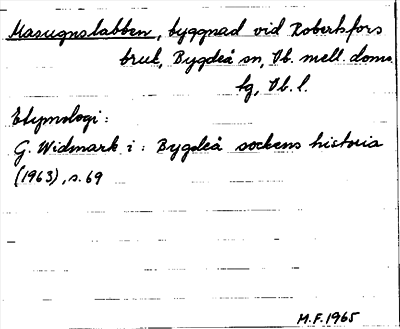 Masugnslabben, byggnad vid Robertsfors
bruk, Bygdeå sn, Vb. mell. doms.
tg, Vb. l.
Etymologi:
G. Widmark i: Bygdeå sockens historia
(1963), s. 69
M.F. 1965